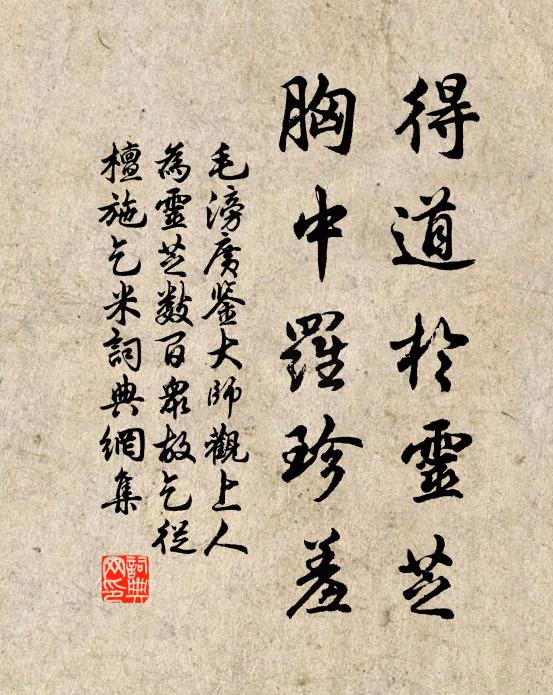 得道於靈芝
胸中羅珍羞
毛滂廣鑒大師觀上人
為靈芝數百眾故乞從
檀施乞米詞典網集
詞典
网印